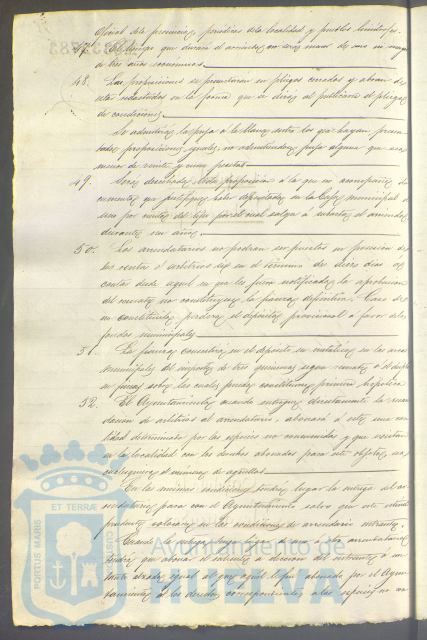 oficial de la provincia, periodicos de la localidad y pueblos limitrofes.
47. El tiempo que durará el arriendo no será menos de uno ni mayor
de tres años económicos
48. Las proposiciones se presentarán en pliegos cerrados y abran de
estar redactadas en la forma que se dirá al publicarse el pliego
de condiciones
Se admitirá la puja á la llana entre los que hayan presen
tado proposiciones iguales, no admitiendose puja alguna que sea
menor de veinte y cinco pesetas
49. Será desechada toda proposicion á la que no acompañe do
cumentos que justifiquen haber depositado en la Caja municipal el
cinco por ciento del tipo por el cual salga á subasta el arriendo
durante un año
50. Los arrendatarios no podrán ser puestos en posesion de
las rentas ó arbitrios en el término de diez dias á
contar desde aquel en que les fuere notificada la aprobacion
del remate no constituyen la fianza definitiva. Caso de
no constituirla perderá el depósito provisional á favor de los
fondos municipales
51. La fianza consistirá en el depósito en metálico en las arcas
municipales del importe de tres quincenas segun remate ó el duplo
en fincas sobre las cuales pueda constituirse primera hipoteca
52. El Ayuntamiento cuando entregue directamente la recau
dacion de arbitrios al arrendatario, abonará á este una can
tidad determinada por las especies no consumidas y que existan
en la localidad con los derechos abonados para este objeto, sea
cualesquiera el número de aquellas
En las mismas condiciones tendrá lugar la entrega del ar
rendatario para con el Ayuntamiento salvo que este
en las condiciones de arrendatario entrante.
Cuando la entrega tenga lugar de uno á otro arrendatario
tendrá que abonar el saliente á
tanto alzado igual al que aquel le fué abonado por el Ayun
tamiento á los derechos correspondientes á las especies no
PORTUS MARIS ET TERRÆ CUSTODIA
Ayuntamiento de
HUELVA